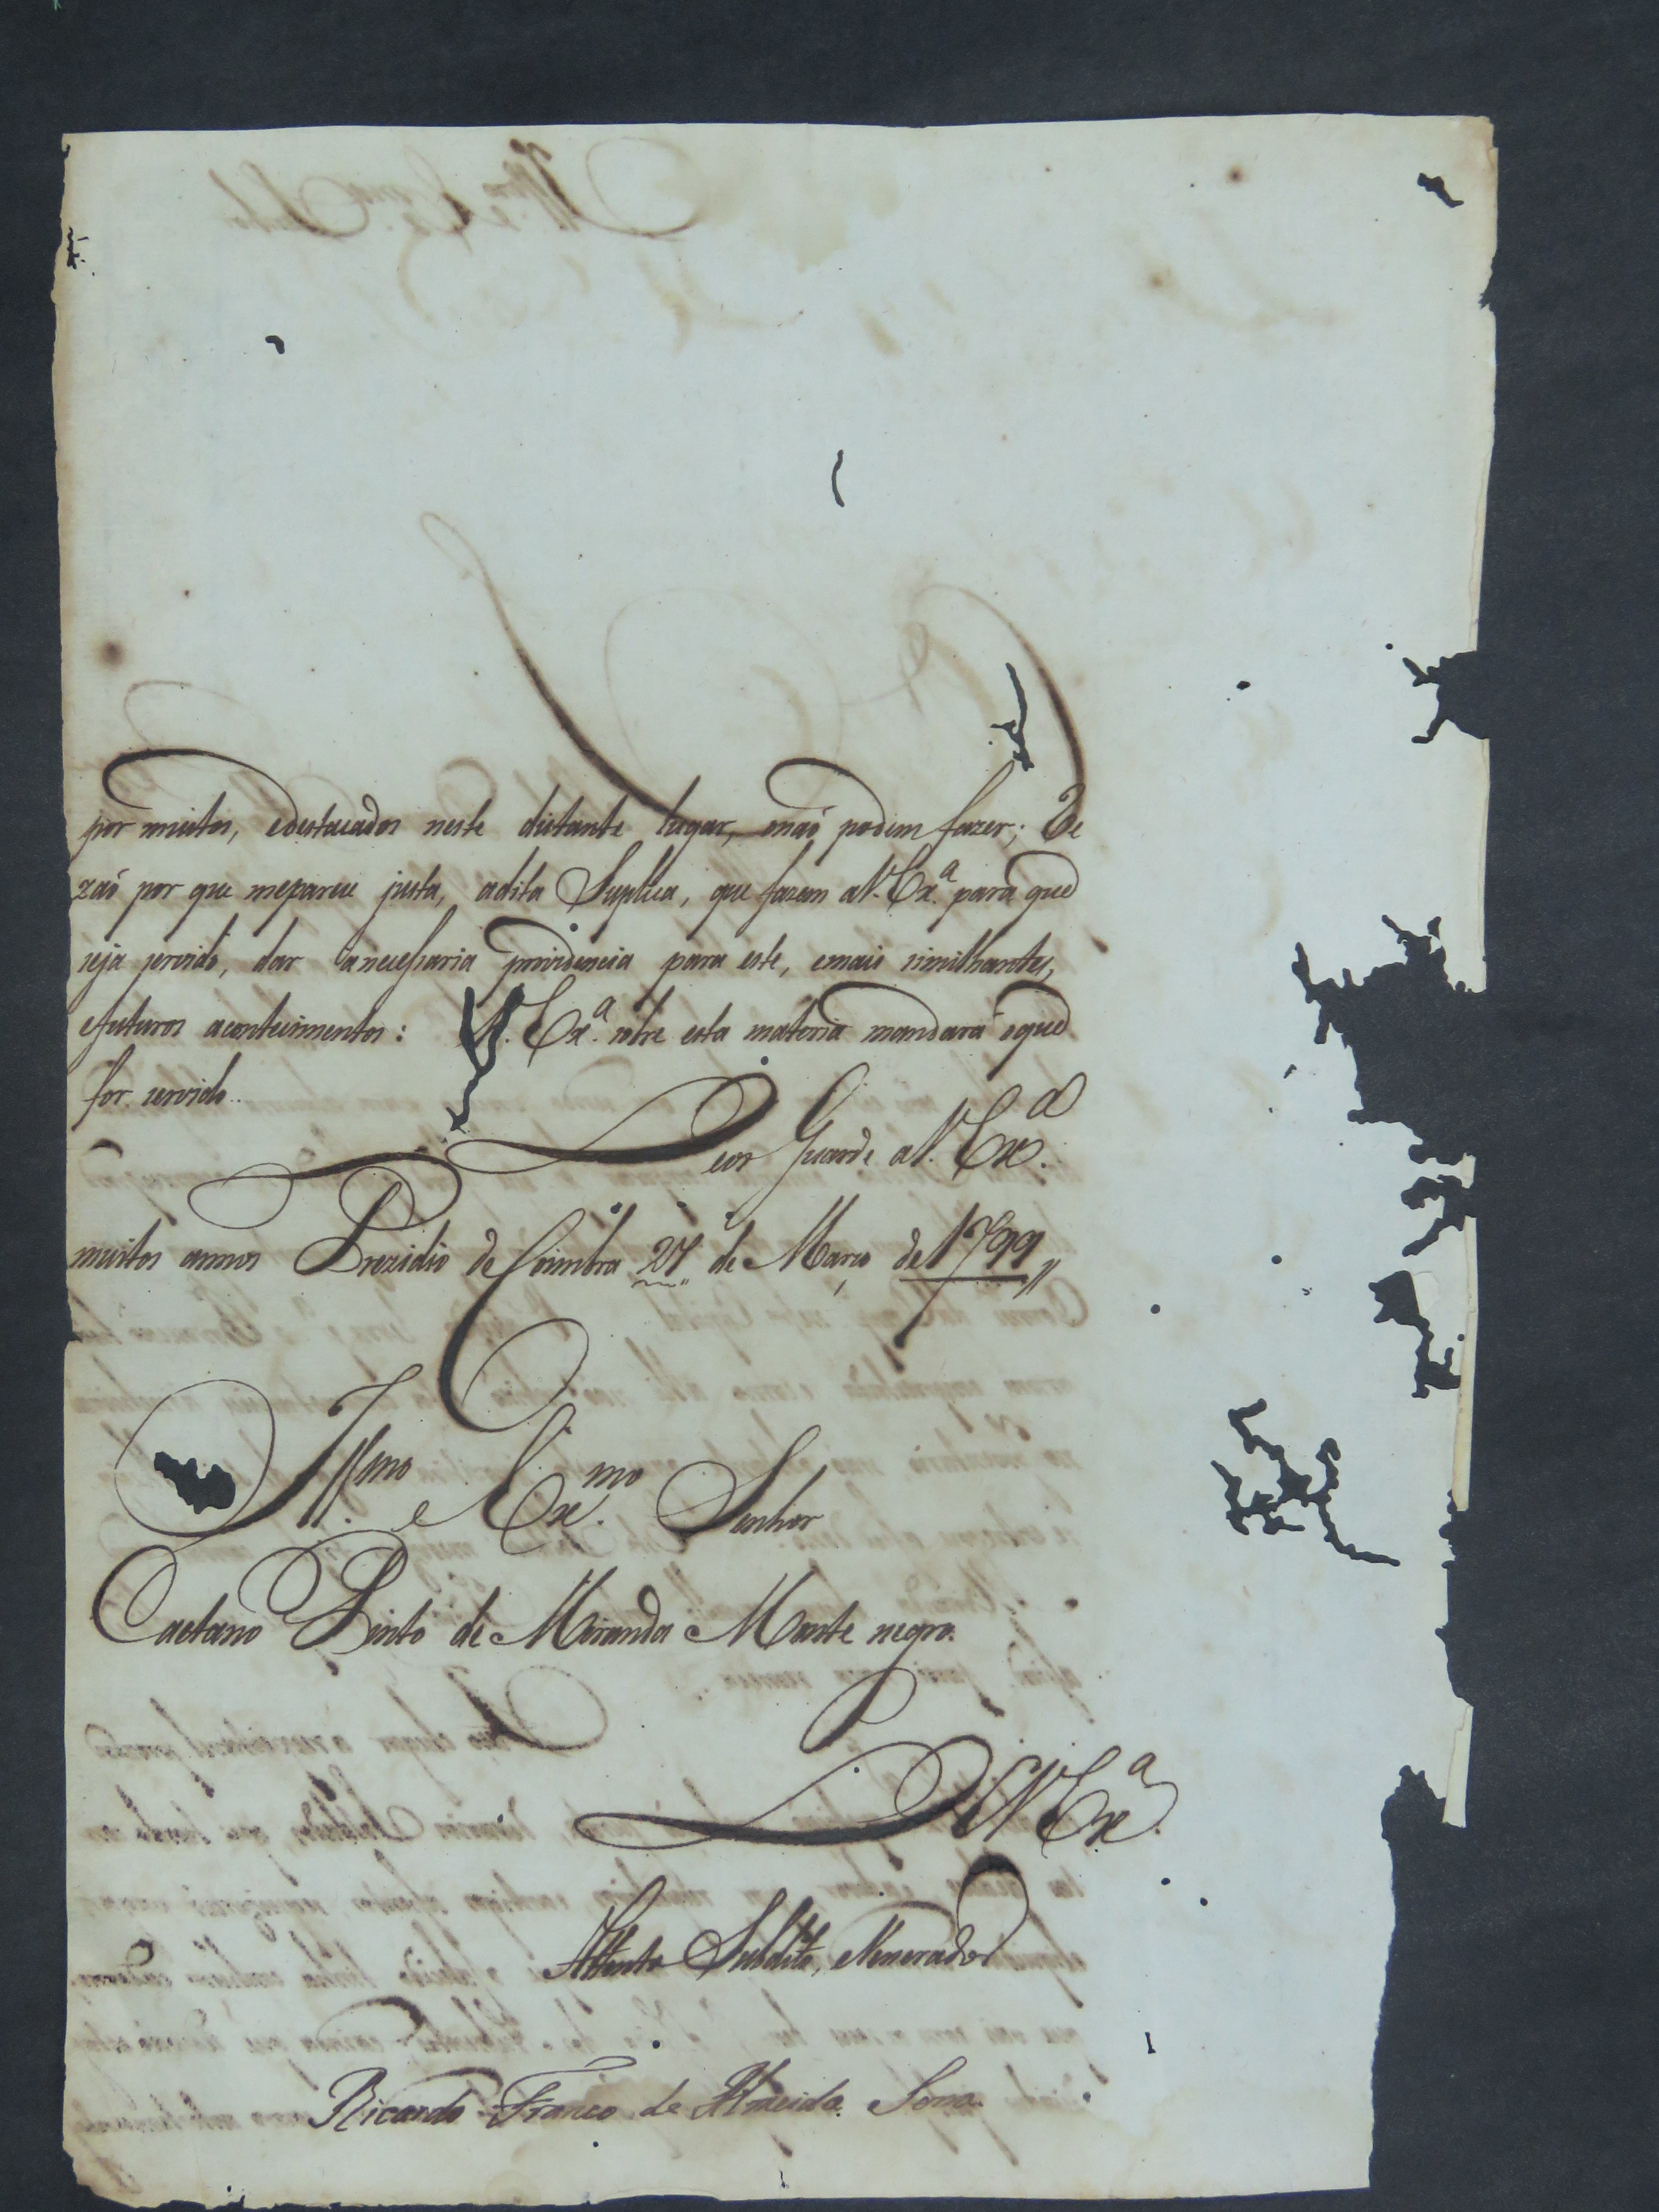 por muitos, edestacados neste distante lugar, onaõ podem fazer; Re
zaõ por que meparece justa, adita Suplica, que fazem aV. Exª. para que
seja servido, dar anecessaria providencia para este, emais similhantes,
efuturos acontecimentos: V. Exª. sobre esta materia mandará oque
for servido.
Deos Guarde aV. Exª.
muitos annos Prezidio de Coimbra 27 de Março de 1799
Illmo. e Exmo. Senhor
Caetano Pinto de Miranda Monte negro.
De V. Exª.
Attento Subdito, eVenerador
Ricardo Franco de Almeida Serra